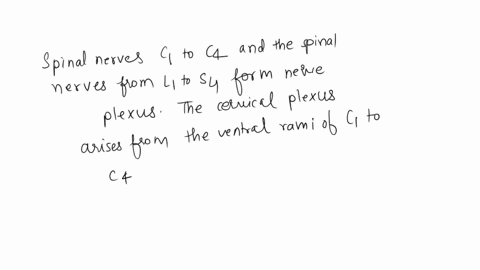 Spinal nerves C1 to C4 and the spinal
nerves from L1 to S4 form nerve
plexus. The cervical plexus
arises from the ventral rami of C1 to
C4